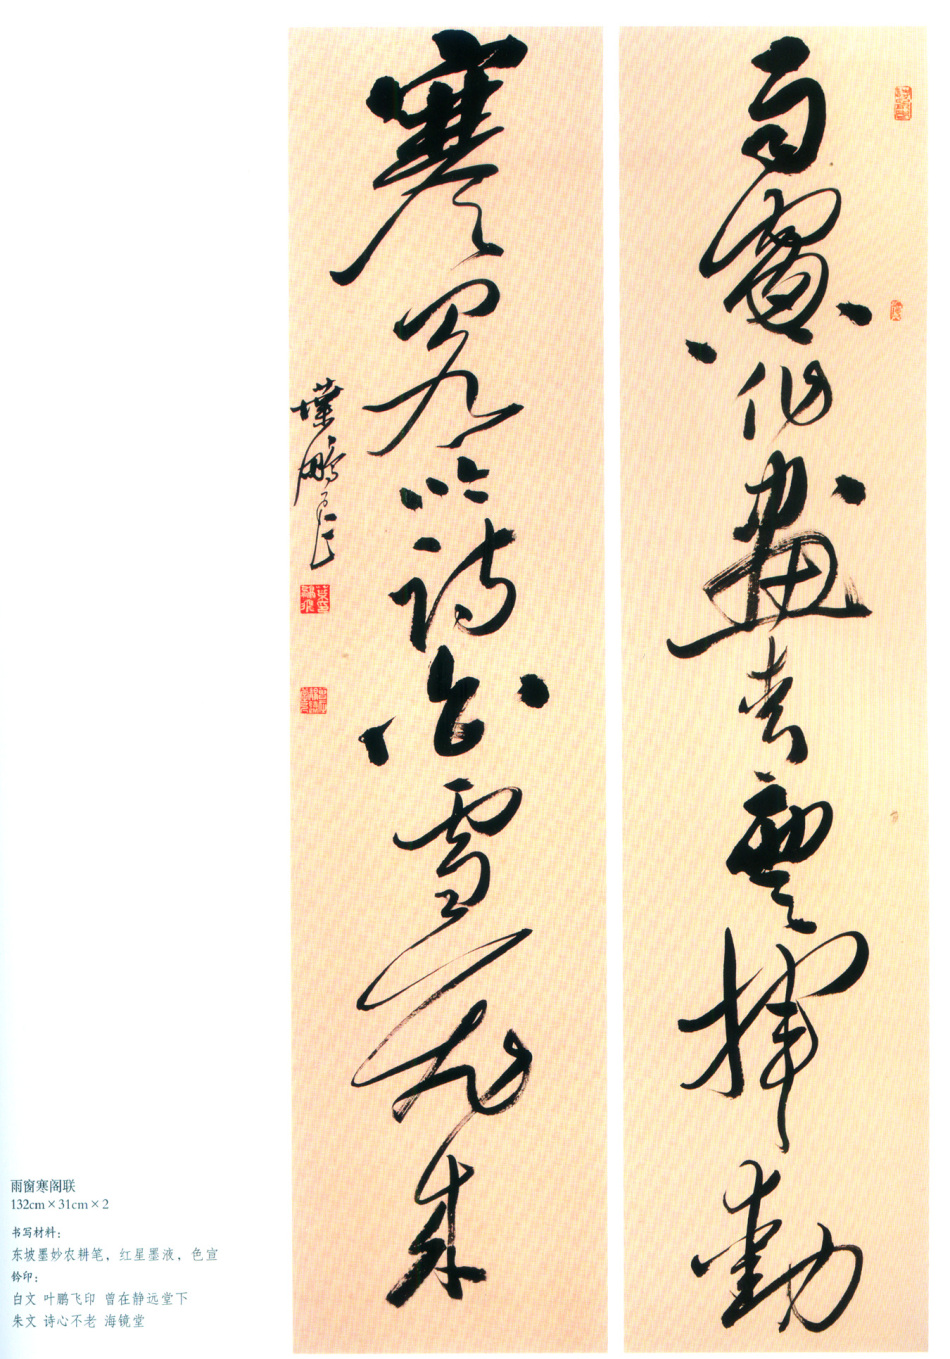 雨窗作畫揮動
寒閣詩雪來
葉鵬飛
雨窗寒阁联
132cm×31cm×2
书写材料：
东坡墨妙农耕笔，红星墨液，色宣
钤印：
白文 叶鹏飞印 曾在静远堂下
朱文 诗心不老 海镜堂